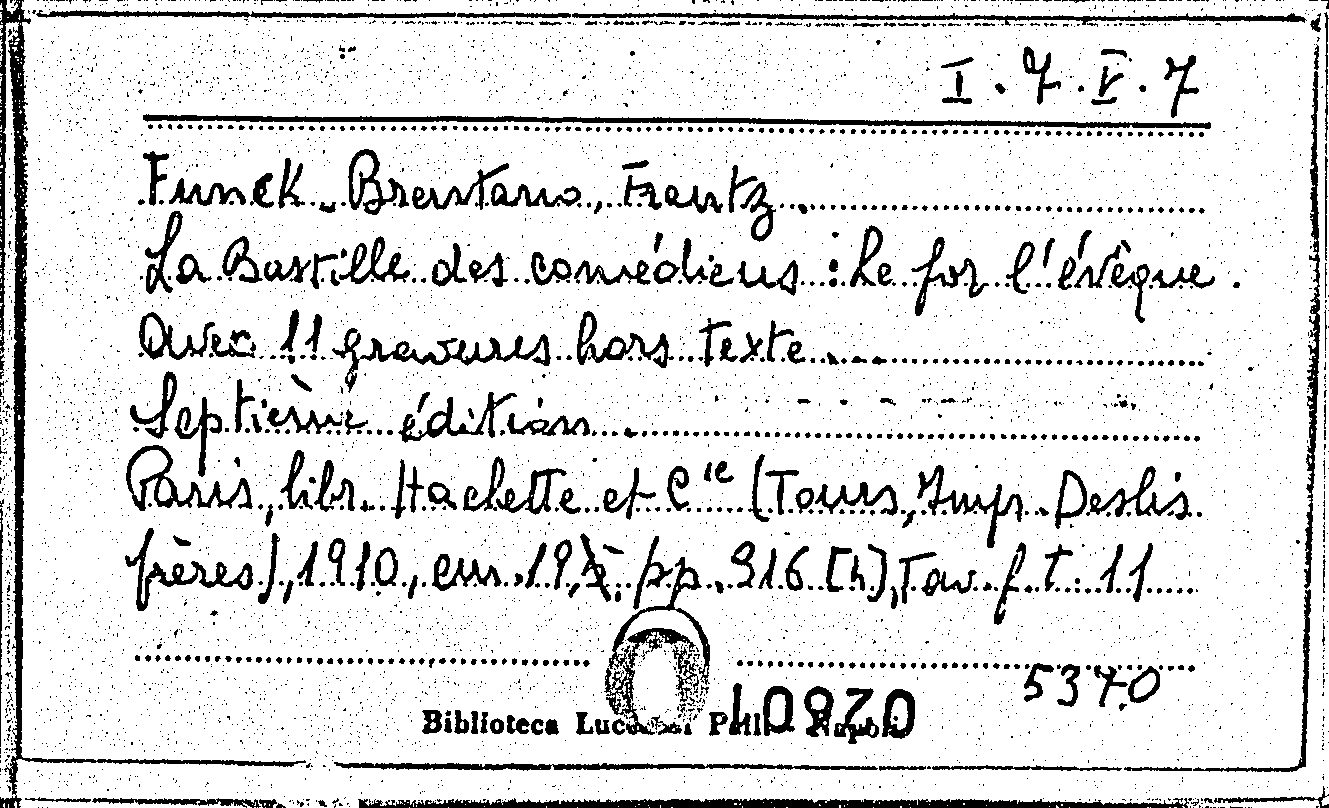 I.7.V.7
Funck-Brentano, Frantz.
La Bastille des comédiens: Le for l'évêque.
avec 11 gravures hors texte....
Septième édition.
Paris, libr. Hachette et Cie (Tours, Impr. Deslis
frères), 1910, cm. 19, pp. 316 [4], Tav. f. t. 11
5370
Biblioteca Napoli